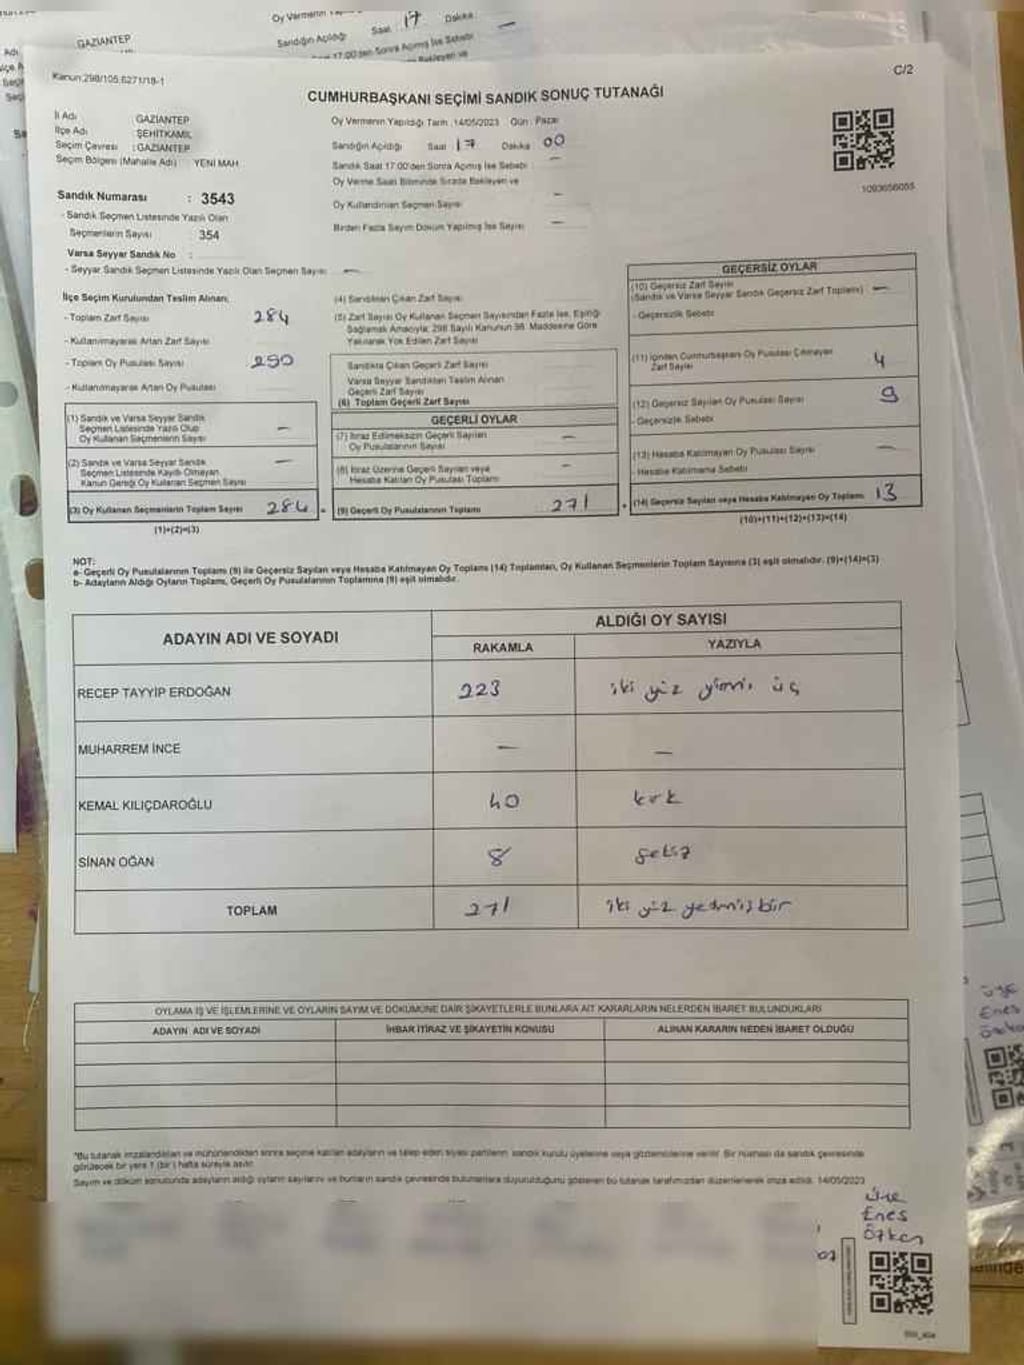 GAZİANTEP
Oy Vermenin
Saat 17 Dakika
Sandığın Açıldığı
17:00'den Sonra Açmış İse Sebebi
Kanun:298/105,6271/18-1
C/2
CUMHURBAŞKANI SEÇİMİ SANDIK SONUÇ TUTANAĞI
İl Adı : GAZİANTEP
İlçe Adı : ŞEHİTKAMİL
Seçim Çevresi : GAZİANTEP
Seçim Bölgesi (Mahalle Adı) : YENİ MAH.
Oy Vermenin Yapıldığı Tarih :14/05/2023 Gün : Pazar
Sandığın Açıldığı Saat 17 Dakika 00
Sandık Saat 17:00'den Sonra Açmış İse Sebebi : —
Oy Verme Saati Bitiminde Sırada Bekleyen ve
Oy Kullandırılan Seçmen Sayısı —
Birden Fazla Sayım Döküm Yapılmış İse Sayısı —
1093656055
Sandık Numarası : 3543
- Sandık Seçmen Listesinde Yazılı Olan
Seçmenlerin Sayısı 354
Varsa Seyyar Sandık No :
- Seyyar Sandık Seçmen Listesinde Yazılı Olan Seçmen Sayısı —
İlçe Seçim Kurulundan Teslim Alınan;
- Toplam Zarf Sayısı 284
- Kullanılmayarak Artan Zarf Sayısı
- Toplam Oy Pusulası Sayısı 290
- Kullanılmayarak Artan Oy Pusulası
(1) Sandık ve Varsa Seyyar Sandık
Seçmen Listesinde Yazılı Olup
Oy Kullanan Seçmenlerin Sayısı —
(2) Sandık ve Varsa Seyyar Sandık
Seçmen Listesinde Kayıtlı Olmayan,
Kanun Gereği Oy Kullanan Seçmen Sayısı —
(3) Oy Kullanan Seçmenlerin Toplam Sayısı 284 =
(1)+(2)=(3)
(4) Sandıktan Çıkan Zarf Sayısı
(5) Zarf Sayısı Oy Kullanan Seçmen Sayısından Fazla İse, Eşitliği
Sağlamak Amacıyla; 298 Sayılı Kanunun 98. Maddesine Göre
Yakılarak Yok Edilen Zarf Sayısı
Sandıkta Çıkan Geçerli Zarf Sayısı
Varsa Seyyar Sandıktan Teslim Alınan
Geçerli Zarf Sayısı
(6) Toplam Geçerli Zarf Sayısı
GEÇERLİ OYLAR
(7) İtiraz Edilmeksizin Geçerli Sayılan
Oy Pusulalarının Sayısı —
(8) İtiraz Üzerine Geçerli Sayılan veya
Hesaba Katılan Oy Pusulası Toplamı —
(9) Geçerli Oy Pusulalarının Toplamı 271 +
GEÇERSİZ OYLAR
(10) Geçersiz Zarf Sayısı
(Sandık ve Varsa Seyyar Sandık Geçersiz Zarf Toplamı) —
- Geçersizlik Sebebi
(11) İçinden Cumhurbaşkanı Oy Pusulası Çıkmayan
Zarf Sayısı 4
(12) Geçersiz Sayılan Oy Pusulası Sayısı 9
- Geçersizlik Sebebi
(13) Hesaba Katılmayan Oy Pusulası Sayısı —
- Hesaba Katılmama Sebebi
(14) Geçersiz Sayılan veya Hesaba Katılmayan Oy Toplamı 13
(10)+(11)+(12)+(13)=(14)
NOT:
a- Geçerli Oy Pusulalarının Toplamı (9) ile Geçersiz Sayılan veya Hesaba Katılmayan Oy Toplamı (14) Toplamları, Oy Kullanan Seçmenlerin Toplam Sayısına (3) eşit olmalıdır. (9)+(14)=(3)
b- Adayların Aldığı Oyların Toplamı, Geçerli Oy Pusulalarının Toplamına (9) eşit olmalıdır.
ADAYIN ADI VE SOYADI
ALDIĞI OY SAYISI
RAKAMLA
YAZIYLA
RECEP TAYYİP ERDOĞAN 223 iki yüz yirmi üç
MUHARREM İNCE — —
KEMAL KILIÇDAROĞLU 40 kırk
SİNAN OĞAN 8 sekiz
TOPLAM 271 iki yüz yetmiş bir
OYLAMA İŞ VE İŞLEMLERİNE VE OYLARIN SAYIM VE DÖKÜMÜNE DAİR ŞİKAYETLERLE BUNLARA AİT KARARLARIN NELERDEN İBARET BULUNDUKLARI
ADAYIN ADI VE SOYADI
İHBAR İTİRAZ VE ŞİKAYETİN KONUSU
ALINAN KARARIN NEDEN İBARET OLDUĞU
*Bu tutanak imzalandıktan ve mühürlendikten sonra seçime katılan adayların ve talep eden siyasi partilerin, sandık kurulu üyelerine veya gözlemcilerine verilir. Bir nüshası da sandık çevresinde
görülecek bir yere 1 (bir) hafta süreyle asılır.
Sayım ve döküm sonucunda adayların aldığı oyların sayılarını ve bunların sandık çevresinde bulunanlara duyurulduğunu gösteren bu tutanak tarafımızdan düzenlenerek imza edildi. 14/05/2023
Üye
Enes
Özkan
üye
Enes